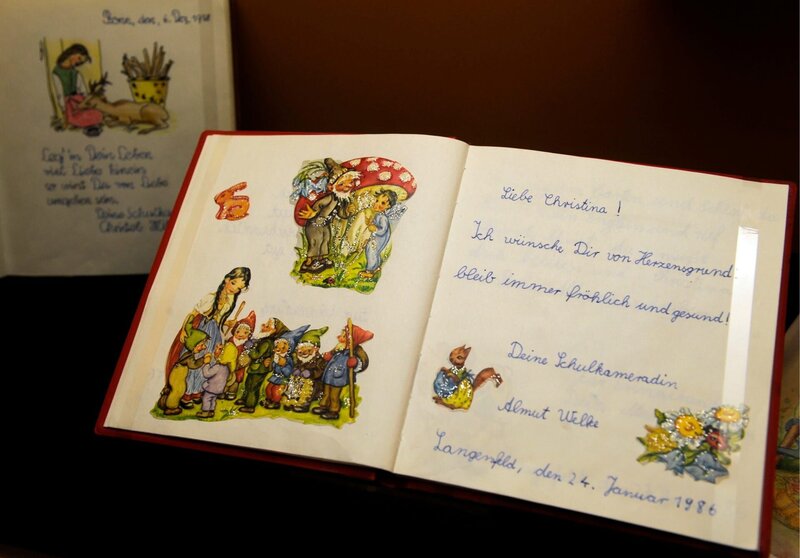 Bonn, den, 6. Dez. 19
Leg' in Dein Leben
viel Liebe hinein
so wirst Du von Liebe
umgeben sein.
Deine
Christel
Liebe Christina!
Ich wünsche Dir von Herzensgrund:
bleib immer fröhlich und gesund!
Deine Schulkameradin
Almut Welke
Langenfeld, den 24. Januar 1986